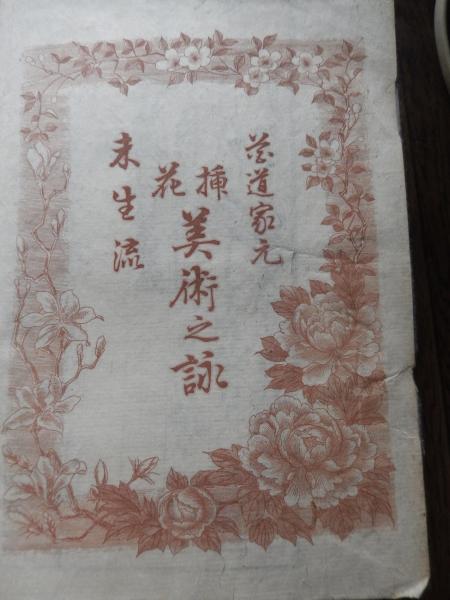 花道家元
挿花
美術之詠
未生流